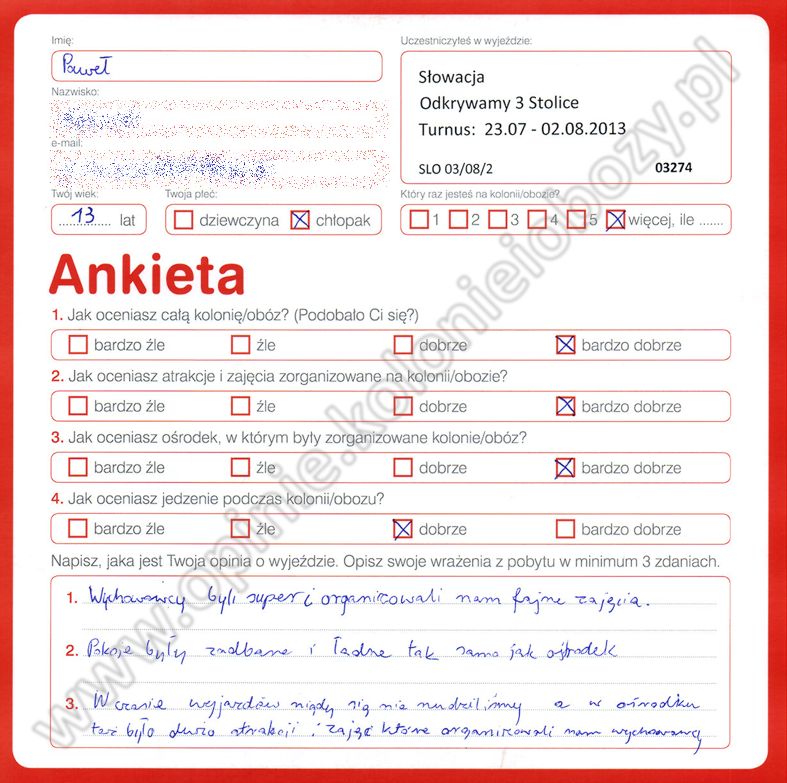 Imię:
Paweł
Nazwisko:
e-mail:
Twój wiek:
13 lat
Twoja płeć:
dziewczyna chłopak
Uczestniczyłeś w wyjeździe:
Słowacja
Odkrywamy 3 Stolice
Turnus: 23.07 - 02.08.2013
SLO 03/08/2 03274
Który raz jesteś na kolonii/obozie?
1 2 3 4 5 więcej, ile .......
Ankieta
1. Jak oceniasz całą kolonię/obóz? (Podobało Ci się?)
bardzo źle źle dobrze bardzo dobrze
2. Jak oceniasz atrakcje i zajęcia zorganizowane na kolonii/obozie?
bardzo źle źle dobrze bardzo dobrze
3. Jak oceniasz ośrodek, w którym były zorganizowane kolonie/obóz?
bardzo źle źle dobrze bardzo dobrze
4. Jak oceniasz jedzenie podczas kolonii/obozu?
bardzo źle źle dobrze bardzo dobrze
Napisz, jaka jest Twoja opinia o wyjeździe. Opisz swoje wrażenia z pobytu w minimum 3 zdaniach.
1. Wychowawcy byli super i organizowali nam fajne zajęcia.
2. Pokoje były zadbane i ładne tak samo jak ośrodek
3. W czasie wyjazdów nigdy się nie nudziliśmy a w ośrodku
też było dużo atrakcji i zajęć które organizowali nam wychowawcy
www.opinie.kolonieiobozy.pl